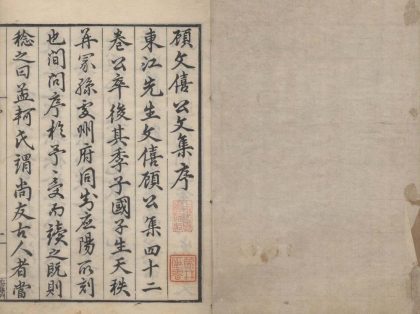 顧文僖公文集序
東江先生文僖顧公集四十二
卷公卒後其季子國子生天秩
并冢孫處州府同知應陽所刻
也間問序於予予受而讀之既則
稔之曰孟軻氏謂尚友古人者當